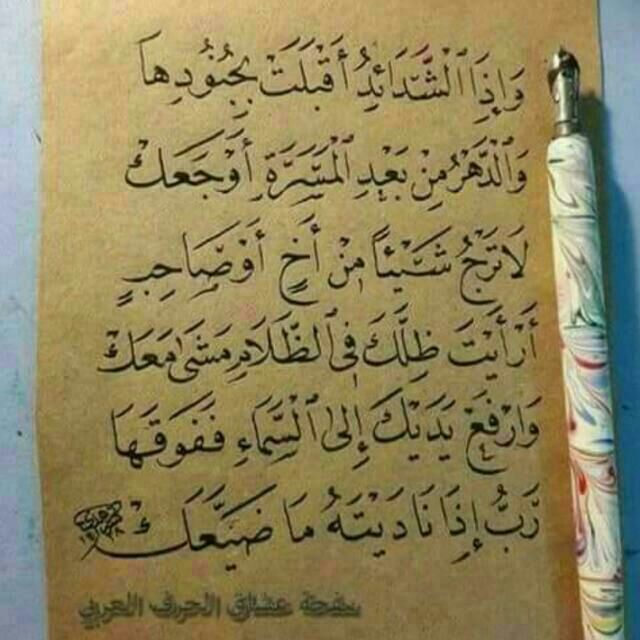 وَإِذَا ٱلشَّدَائِدُ أَقْبَلَتْ بِجُنُودِهَا
وَالدَّهْرُ مِنْ بَعْدِ الْمَسَرَّةِ أَوْجَعَكْ
لَا تَرْجُ شَيْئاً مِنْ أَخٍ أَوْ صَاحِبٍ
أَرَأَيْتَ ظِلَّكَ فِي ٱلظَّلَامِ مَشَى مَعَكْ
وَارْفَعْ يَدَيْكَ إِلَى ٱلسَّمَاءِ فَفَوْقَهَا
رَبٌّ إِذَا نَادَيْتَهُ مَا ضَيَّعَكْ
صفحة عشاق الحرف العربي